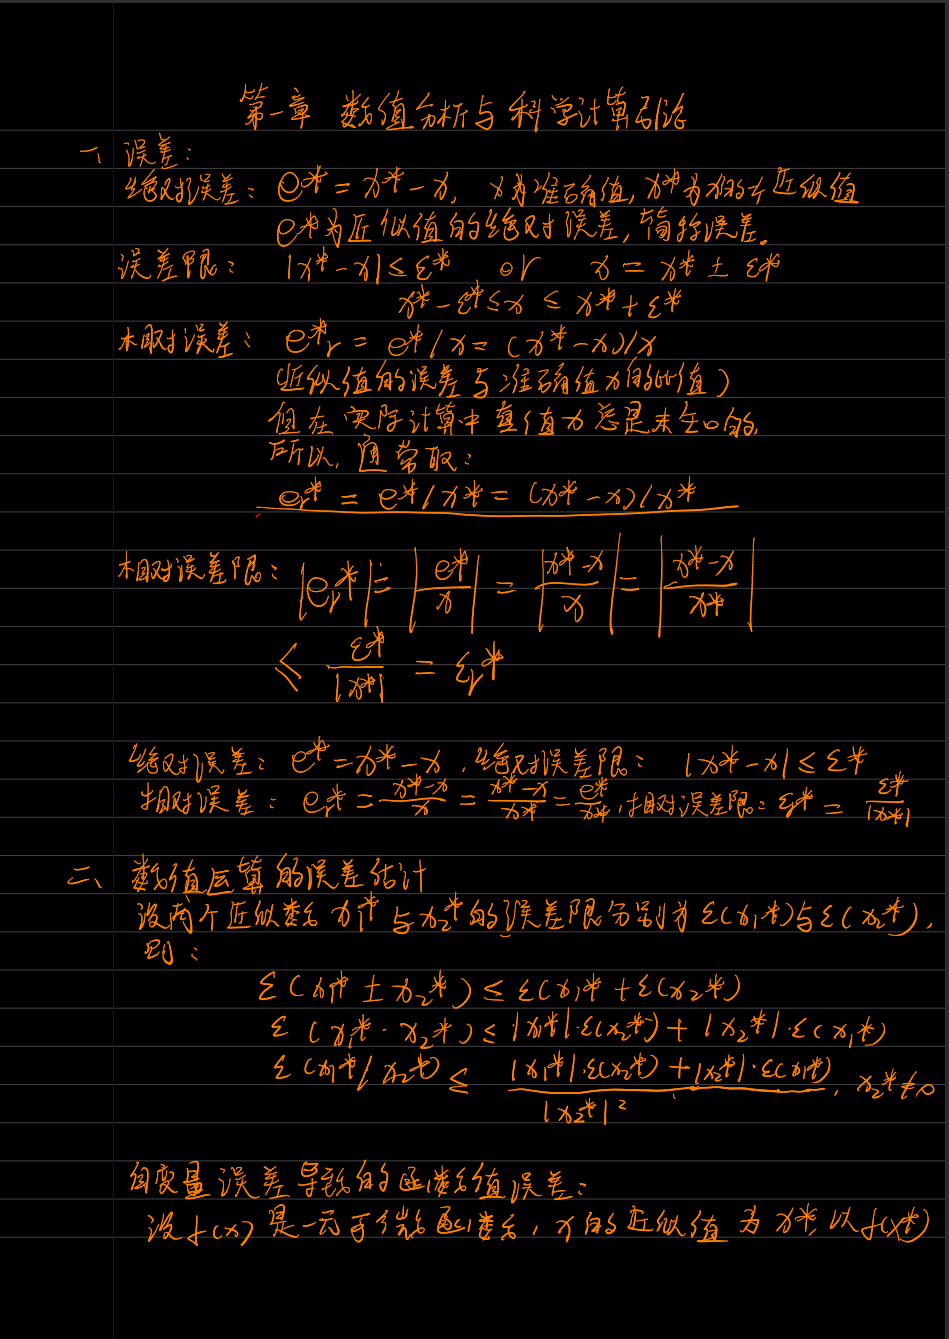 第一章 数值分析与科学计算引论
一、误差：
绝对误差：e* = x* - x, x为准确值, x*为x的一个近似值
e*为近似值的绝对误差, 简称误差。
误差限： |x* - x| ≤ ε* or x = x* ± ε*
x* - ε* ≤ x ≤ x* + ε*
相对误差： e*r = e* / x = (x* - x) / x
(近似值的误差与准确值x的比值)
但在实际计算中真值x总是未知的,
所以, 通常取：
er* = e* / x* = (x* - x) / x*
相对误差限： |er*| = |e*/x| = |(x* - x)/x| = |(x* - x)/x*|
≤ ε*/|x*| = εr*
绝对误差： e* = x* - x , 绝对误差限： |x* - x| ≤ ε*
相对误差： er* = (x* - x)/x = (x* - x)/x* = e*/x* , 相对误差限： εr* = ε*/|x*|
二、数值运算的误差估计
设两个近似数 x1* 与 x2* 的误差限分别为 ε(x1*) 与 ε(x2*),
则：
ε(x1* ± x2*) ≤ ε(x1*) + ε(x2*)
ε(x1* · x2*) ≤ |x1*|·ε(x2*) + |x2*|·ε(x1*)
ε(x1* / x2*) ≤ (|x1*|·ε(x2*) + |x2*|·ε(x1*)) / |x2*|² , x2* ≠ 0
自变量误差导致的函数值误差：
设f(x)是一元可微函数, x的近似值为x*, 以f(x*)